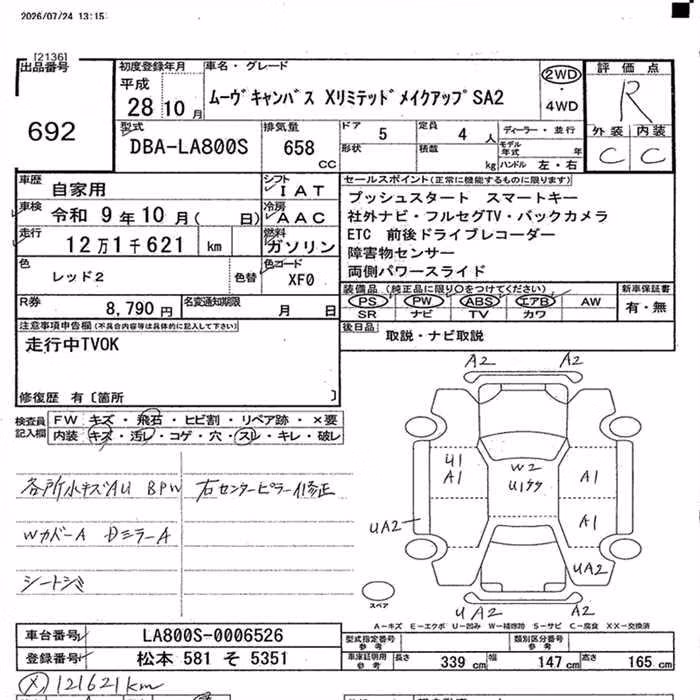 2026/07/24 13:15
[2136]
出品番号
692
初度登録年月
平成
28年10月
車名・グレード
ムーヴキャンバス XリミテッドメイクアップSA2
2WD
・
4WD
評価点
R
外装 内装
C C
型式
DBA-LA800S
排気量
658
CC
ドア 5
定員 4 人
形状
積載 kg
ディーラー・並行
モデル年式 年
ハンドル 左・右
車歴
自家用
シフト
IAT
車検
令和 9年10月( 日)
冷房
AAC
走行
12万1千621 km
燃料
ガソリン
色
レッド2
色替
色コード
XF0
R券
8,790円
名変通知期限
月 日
セールスポイント(正常に機能するものに限ります)
プッシュスタート スマートキー
社外ナビ・フルセグTV・バックカメラ
ETC 前後ドライブレコーダー
障害物センサー
両側パワースライド
装備品(純正品に限り○をつけてください)
PS PW ABS エアB AW
SR ナビ TV カワ
新車保証書
有・無
後日品
取説・ナビ取説
注意事項申告欄(不具合内容等は具体的に記入して下さい)
走行中TVOK
修復歴 有〔箇所 〕
検査員記入欄
FW キズ・飛石・ヒビ割・リペア跡・×要
内装 キズ・汚レ・コゲ・穴・スレ・キレ・破レ
各所小キズAU BPW
右センターピラー修正
WカバーA DミラーA
シートシミ
A2 A2
U1
A1
W2
A1
A1
UA2
UA2
スペア
UA2 A2
A-キズ E-エクボ U-凹み W-補修跡 S-サビ C-腐食 XX-交換済
車台番号
LA800S-0006526
登録番号
松本 581 そ 5351
型式指定番号
参考
類別区分番号
参考
車庫証明用
参考
長さ 339 cm 幅 147 cm 高さ 165 cm
121621km